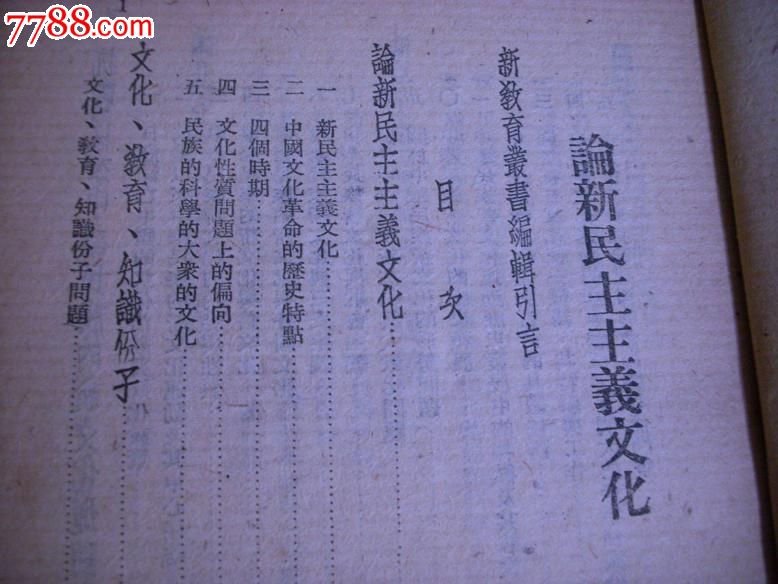 7788.com
中国收藏热线
1
論新民主主義文化
新教育叢書編輯引言
目次
論新民主主義文化
一 新民主主義文化
二 中國文化革命的歷史特點
三 四個時期
四 文化性質問題上的偏向
五 民族的科學的大衆的文化
文化、教育、知識份子
文化、教育、知識份子問題